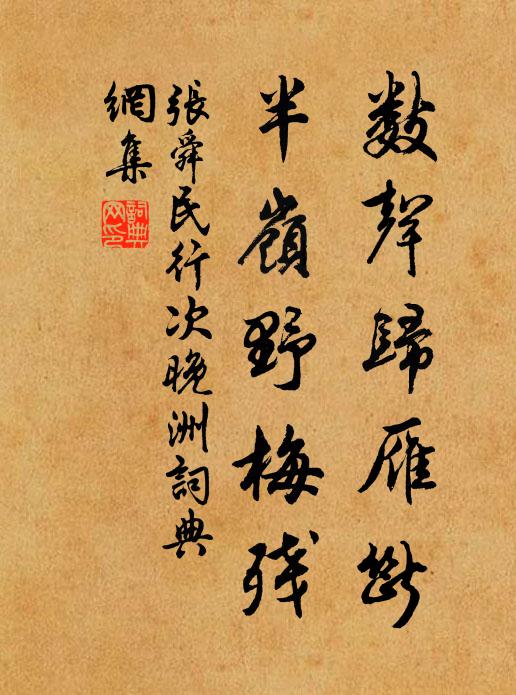 數聲歸雁斷
半嶺野梅殘
張舜民行次晚洲詞典
網集
詞典
网印